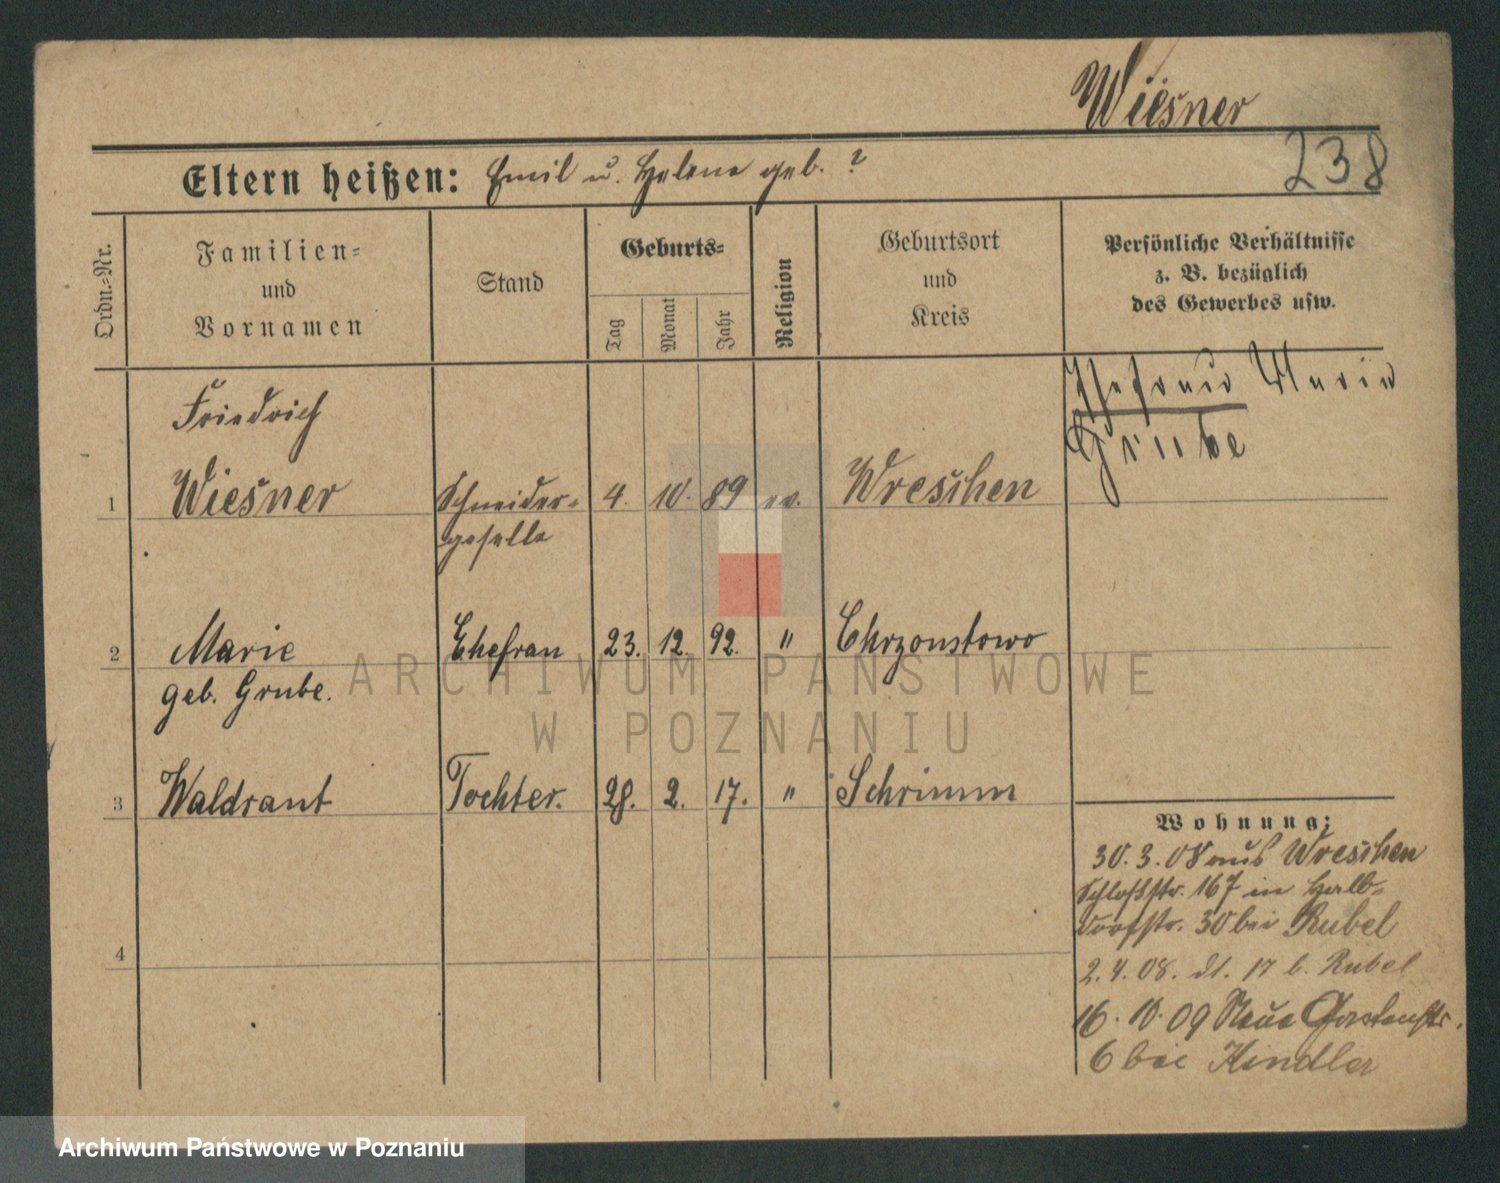 Wiesner
238
Eltern heißen: Emil u. Helene geb. ?
Ordn.-Nr.
Familien-
und
Vornamen
Stand
Geburts-
Tag
Monat
Jahr
Religion
Geburtsort
und
Kreis
Persönliche Verhältnisse
z. B. bezüglich
des Gewerbes usw.
Ehefrau Marie
Grube
Friedrich
1 Wiesner Schneider- 4. 10. 89 ev. Wreschen
geselle
2 Marie Ehefrau 23. 12. 92. " Chrzonstowo
geb. Grube.
3 Waldraut Tochter. 28. 2. 17. " Schrimm
4
Wohnung:
30. 3. 08 aus Wreschen
Schloßstr. 167 in Halb-
dorfstr. 30 bei Rubel
2. 4. 08. dt. 17 b. Rubel
16. 10. 09 Neue Gartenstr.
6 bei Kindler
ARCHIWUM PAŃSTWOWE
W POZNANIU
Archiwum Państwowe w Poznaniu